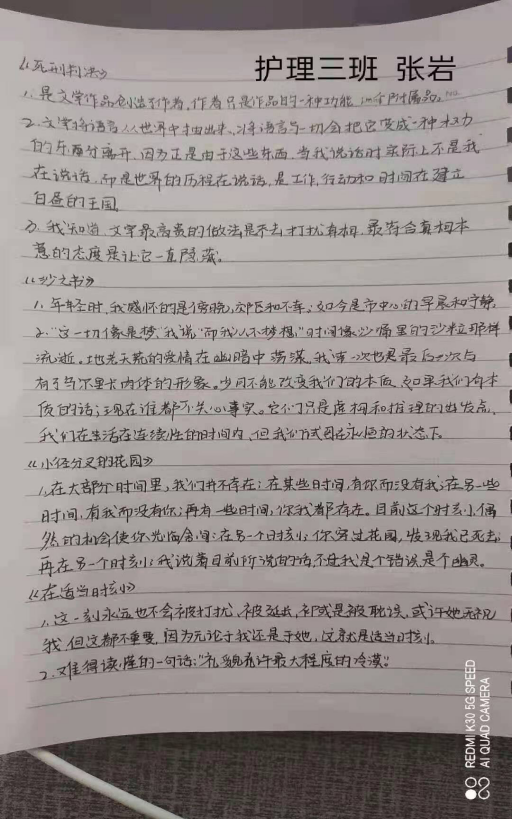 护理三班 张岩
《死刑判决》
1. 是文学作品创造了作者,作者只是作品的一种功能 一个附属品。
2. 文学将语言从世界中抽出来,将语言与一切会把它变成一种权力
的东西分离开,因为正是由于这些东西,当我说话时实际上不是我
在说话,而是世界的历程在说话,是工作,行动和时间在建立
白昼的王国
3. 我知道,文学最高贵的做法是不去打扰真相,最符合真相本
意的态度是让它一直隐藏。
《沙之书》
1. 年轻时,我感怀的是傍晚,郊区和不幸;如今是市中心的早晨和宁静
2. "这一切像是梦"我说"而我从不梦想"时间像沙漏里的沙粒那样
流逝。地老天荒的爱情在幽暗中荡漾,我第一次也是最后一次占
有了乌尔里卡肉体的形象。岁月不能改变我们的本质,如果我们有本
质的话;现在谁都不关心事实。它们只是虚构和推理的出发点,
我们在生活在连续性的时间内,但我们试图在永恒的状态下
《小径分叉的花园》
1. 在大部分时间里,我们并不存在;在某些时间,有你而没有我;在另一些
时间,有我而没有你;再有一些时间,你我都存在。目前这个时刻,偶
然的机会使你光临舍间;在另一个时刻,你穿过花园,发现我已死去;
再在另一个时刻,我说着目前所说的话,不过我是个错误是个幽灵。
《在适当时刻》
1. 这一刻永远也不会被打扰、被延长,抑或是被耽误,或许她无视
我,但这都不重要,因为无论于我还是于她,这就是适当时刻。
2. 难得读懂的一句话:"礼貌有许最大程度的冷漠"
REDMI K30 5G SPEED
AI QUAD CAMERA